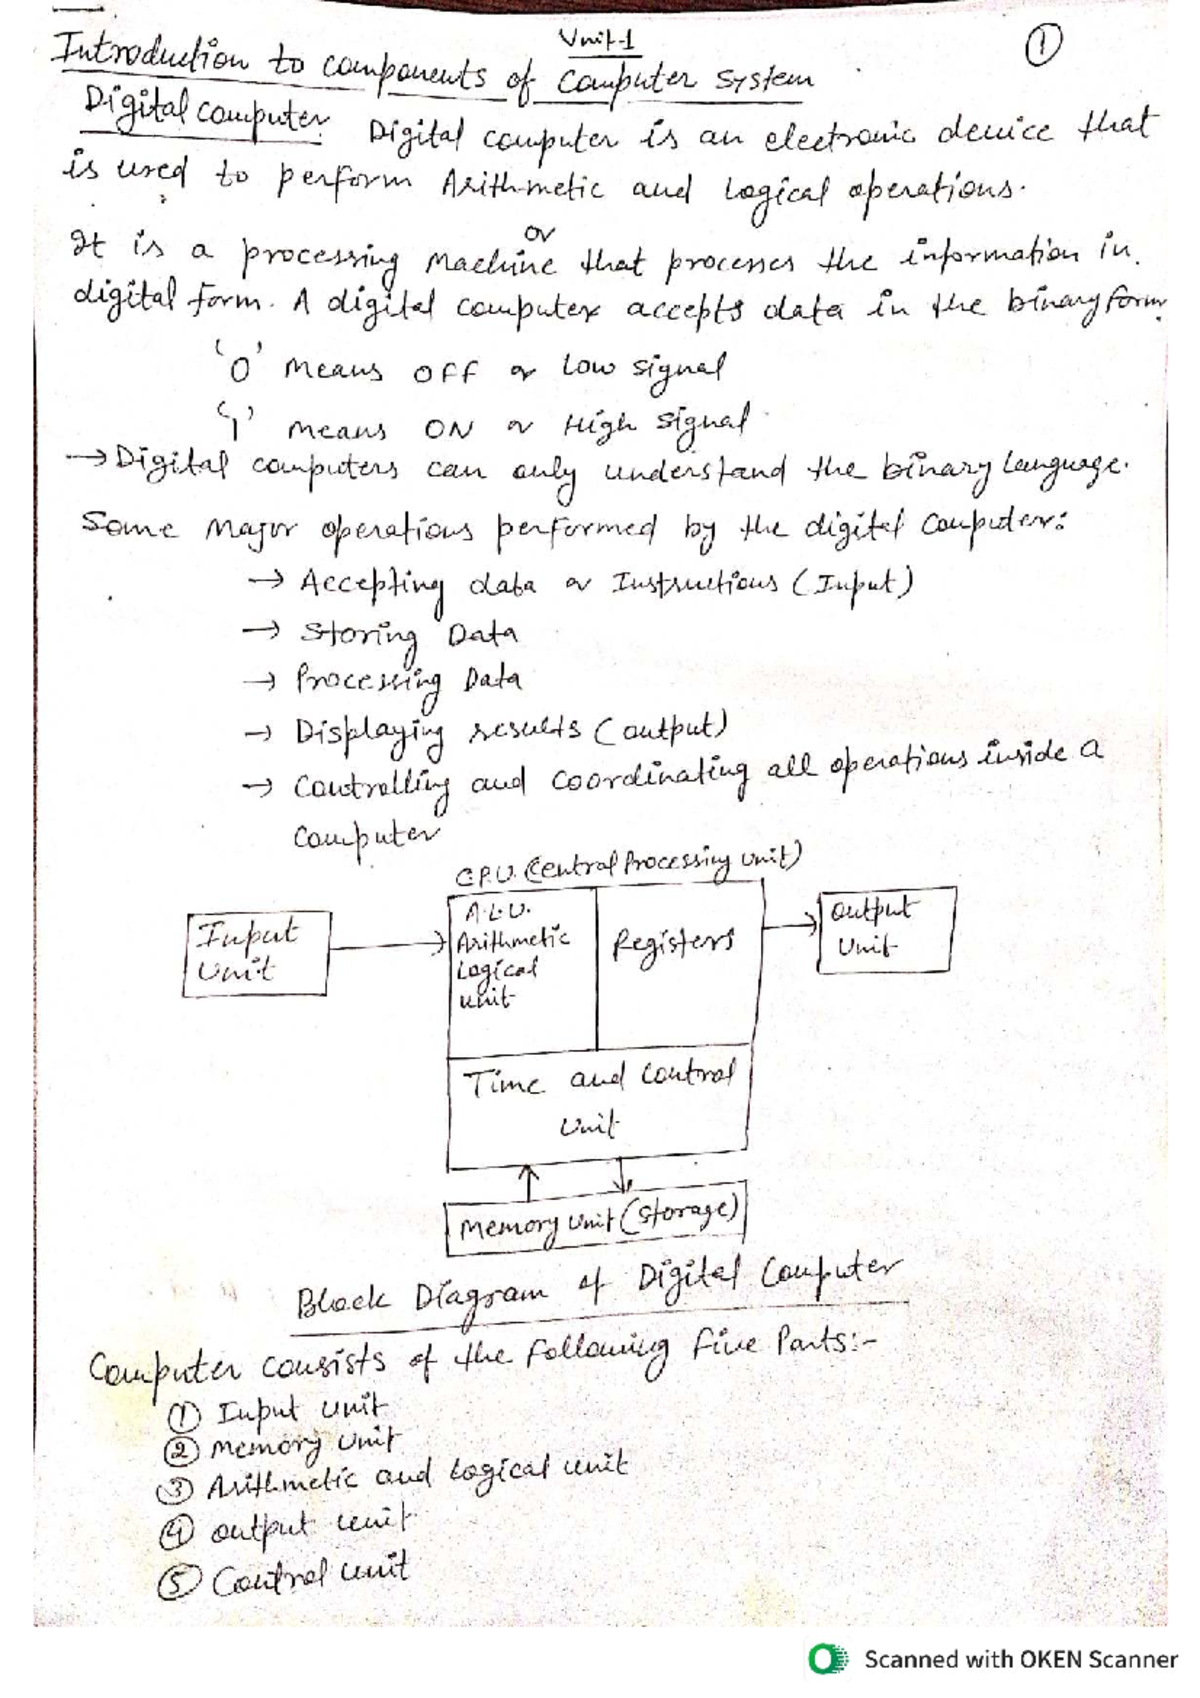 Unit-1
①
Introduction to components of Computer System
Digital computer: Digital computer is an electronic device that
is used to perform Arithmetic and Logical operations.
or
It is a processing Machine that processes the information in
digital form. A digital computer accepts data in the binary form.
'0' means OFF or Low signal
'1' means ON or High signal
→ Digital computers can only understand the binary language.
Some Major operations performed by the digital computer:
→ Accepting data or Instructions (Input)
→ Storing Data
→ Processing Data
→ Displaying results (output)
→ Controlling and coordinating all operations inside a
computer
C.P.U. (Central Processing Unit)
Input
Unit
A.L.U.
Arithmetic
Logical
unit
Registers
output
Unit
Time and control
Unit
Memory Unit (Storage)
Block Diagram of Digital Computer
Computer consists of the following five Parts:-
① Input unit
② Memory Unit
③ Arithmetic and Logical unit
④ output unit
⑤ Control unit
Scanned with OKEN Scanner